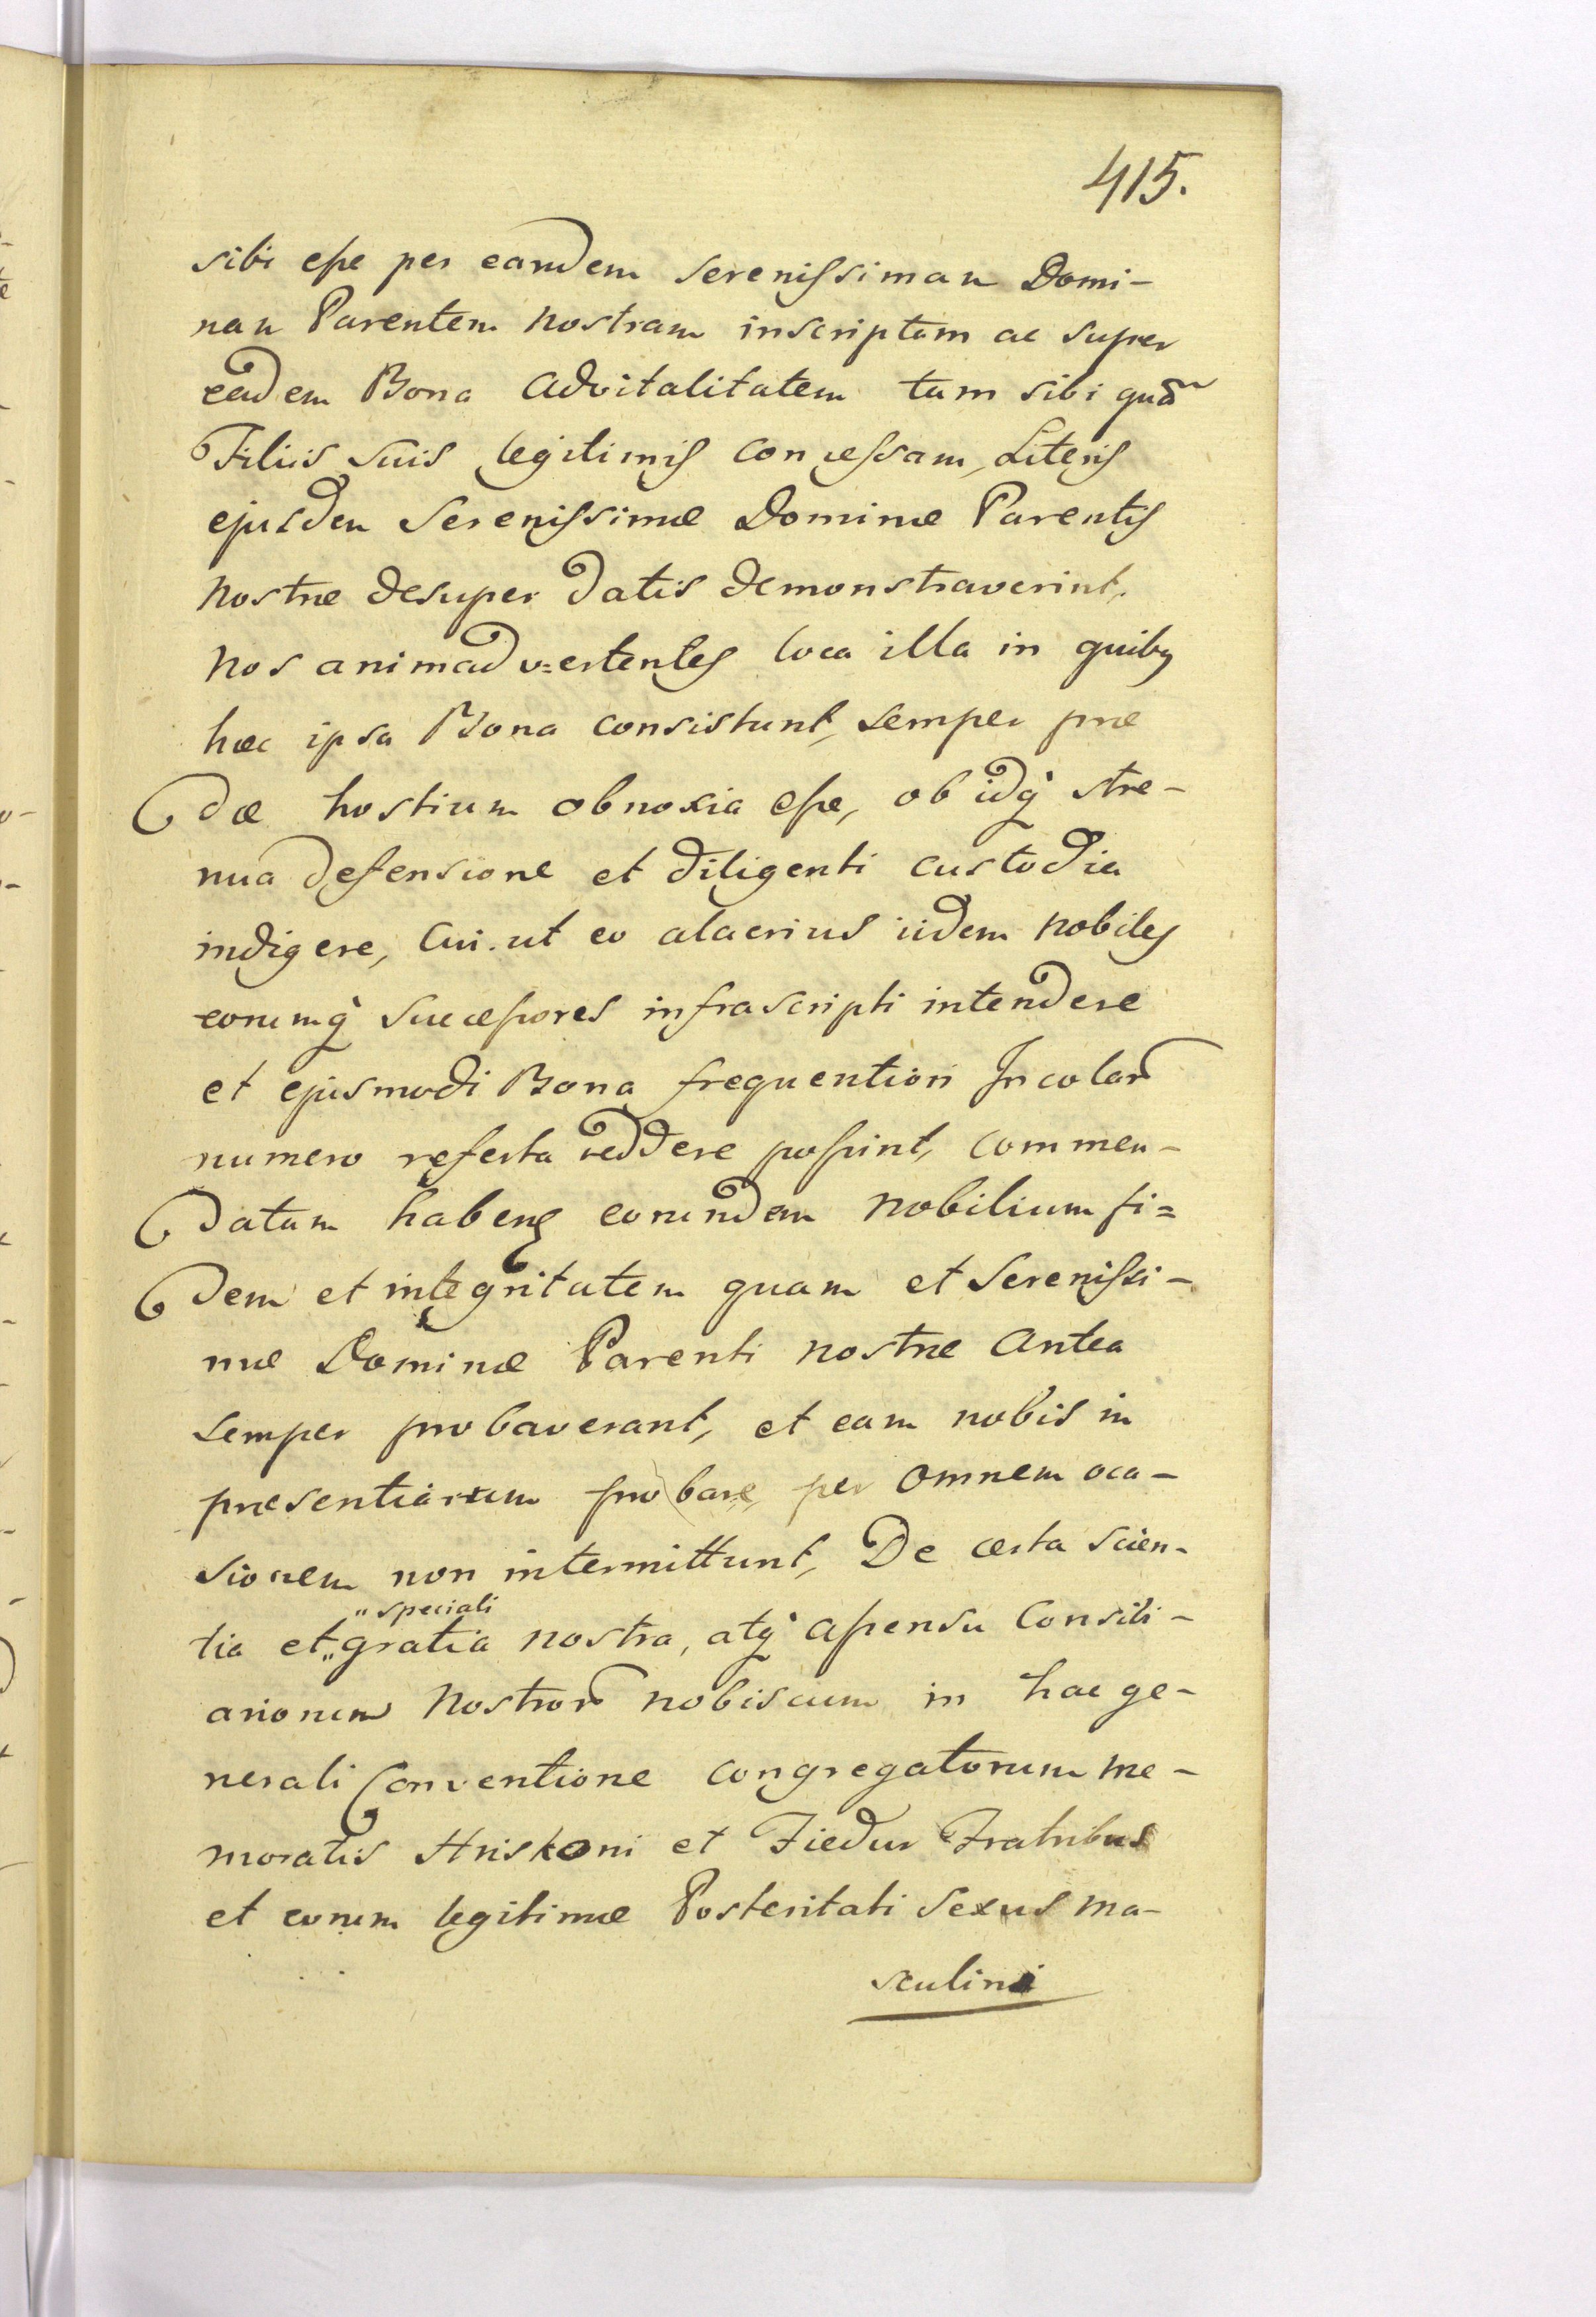 415.
sibi esse per eandem serenissimam Domi-
nam Parentem nostram inscriptam ac super
eadem Bona advitalitatem tam sibi quã
Filiis suis legitimis concessam, Literis
ejusdem Serenissimæ Dominæ Parentis
nostræ desuper datis demonstraverint,
nos animadv=ertentes loca illa in quibꝫ
hæc ipsa Bona consistunt, semper præ
dæ hostium obnoxia esse, ob idq̀ stre-
nua defensione et diligenti custodia
indigere, cui ut eo alacrius iidem nobiles
eorumq̀ successores infrascripti intendere
et ejusmodi Bona frequentiori Incolar̃
numero referta reddere possint, commen-
datam habens eorundem nobilium fi=
dem et integritatem quam et Serenissi-
mæ Dominæ Parenti nostræ antea
semper probaverant, et eam nobis in
præsentiarum probare, per omnem oca-
sionem non intermittunt, De certa scien-
„speciali
tia et„ gratia nostra, atq̀ assensu Consili-
ariorum Nostror̃ nobiscum in hac ge-
nerali Conventione congregatorum me-
moratis Hriskoni et Fiedur Fratribus
et eorum legitimæ Posteritati Sexus ma-
sculini